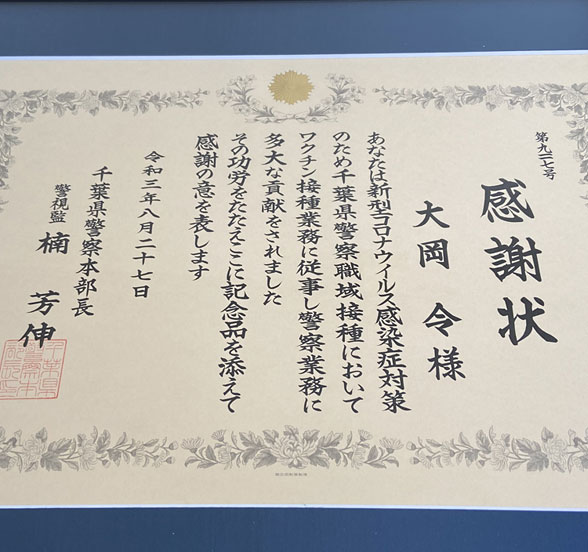 感謝状
第九二七号
大岡 令様
あなたは新型コロナウイルス感染症対策
のため千葉県警察職域接種において
ワクチン接種業務に従事し警察業務に
多大な貢献をされました
その功労をたたえここに記念品を添えて
感謝の意を表します
令和三年八月二十七日
千葉県警察本部長
警視監 楠 芳伸